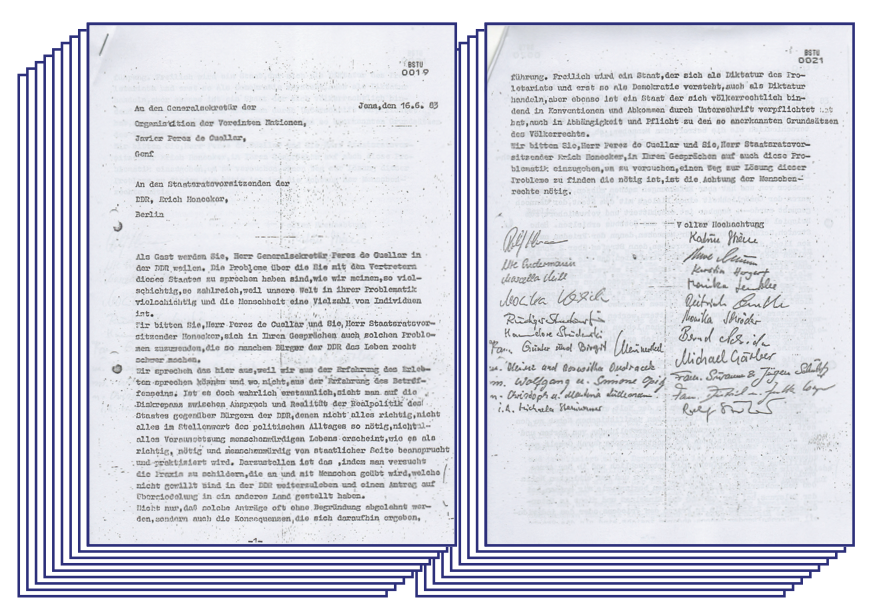 BSTU
0019
Jena,den 16.6. 83
An den Generalsekretär der
Organisation der Vereinten Nationen,
Javier Perez de Cuellar,
Genf
An den Staatsratsvorsitzenden der
DDR, Erich Honecker,
Berlin
Als Gast werden Sie, Herr Generalsekretär Perez de Cuellar in
der DDR weilen. Die Probleme über die Sie mit den Vertretern
dieses Staates zu sprechen haben sind,wie wir meinen,so viel-
schichtig,so zahlreich,weil unsere Welt in ihrer Problematik
vielschichtig und die Menschheit eine Vielzahl von Individuen
ist.
Wir bitten Sie,Herr Perez de Cuellar und Sie,Herr Staatsratsvor-
sitzender Honecker,sich in Ihren Gesprächen auch solchen Proble-
men zuzuwenden,die so manchem Bürger der DDR das Leben recht
schwer machen.
Wir sprechen das hier aus,weil wir aus der Erfahrung des Erleb-
ten sprechen können und wo nicht,aus der Erfahrung des Betrof-
fenseins. Ist es doch wahrlich erstaunlich,sieht man auf die
Diskrepanz zwischen Anspruch und Realität der Realpolitik des
Staates gegenüber Bürgern der DDR,denen nicht alles richtig,nicht
alles im Stellenwert des politischen Alltages so nötig,nicht
alles Voraussetzung menschenwürdigen Lebens erscheint,wie es als
richtig, nötig und menschenwürdig von staatlicher Seite beansprucht
und praktiziert wird. Darzustellen ist das ,indem man versucht
die Praxis zu schildern,die an und mit Menschen geübt wird,welche
nicht gewillt sind in der DDR weiterzuleben und einen Antrag auf
Übersiedelung in ein anderes Land gestellt haben.
Nicht nur,daß solche Anträge oft ohne Begründung abgelehnt wer-
den,sondern auch die Konsequenzen,die sich daraufhin ergeben,
-1-
BSTU
0021
führung. Freilich wird ein Staat,der sich als Diktatur des Pro-
letariats und erst so als Demokratie versteht,auch als Diktatur
handeln,aber ebenso ist ein Staat der sich völkerrechtlich bin-
dend in Konventionen und Abkommen durch Unterschrift verpflichtet
hat,auch in Abhängigkeit und Pflicht zu den so anerkannten Grundsätzen
des Völkerrechts.
Wir bitten Sie,Herr Perez de Cuellar und Sie,Herr Staatsratsvor-
sitzender Erich Honecker,in Ihren Gesprächen auf auch diese Pro-
blematik einzugehen,es zu versuchen,einen Weg zur Lösung dieser
Probleme zu finden die nötig ist,ist die Achtung der Menschen-
rechte nötig.
Voller Hochachtung
Ute
Marcella
Rüdiger
Hannelore
Fam. Günter und Birgit
u. Meinet und Roswitha
m. Wolfgang u. Simone
u. Christoph u. Martina
i.A. Michaela
Katrin
Kerstin
Monika
Dietrich
Monika Schröder
Bernd
Michael Gärber
Fam. Susann & Jürgen
Fam.
Rolf